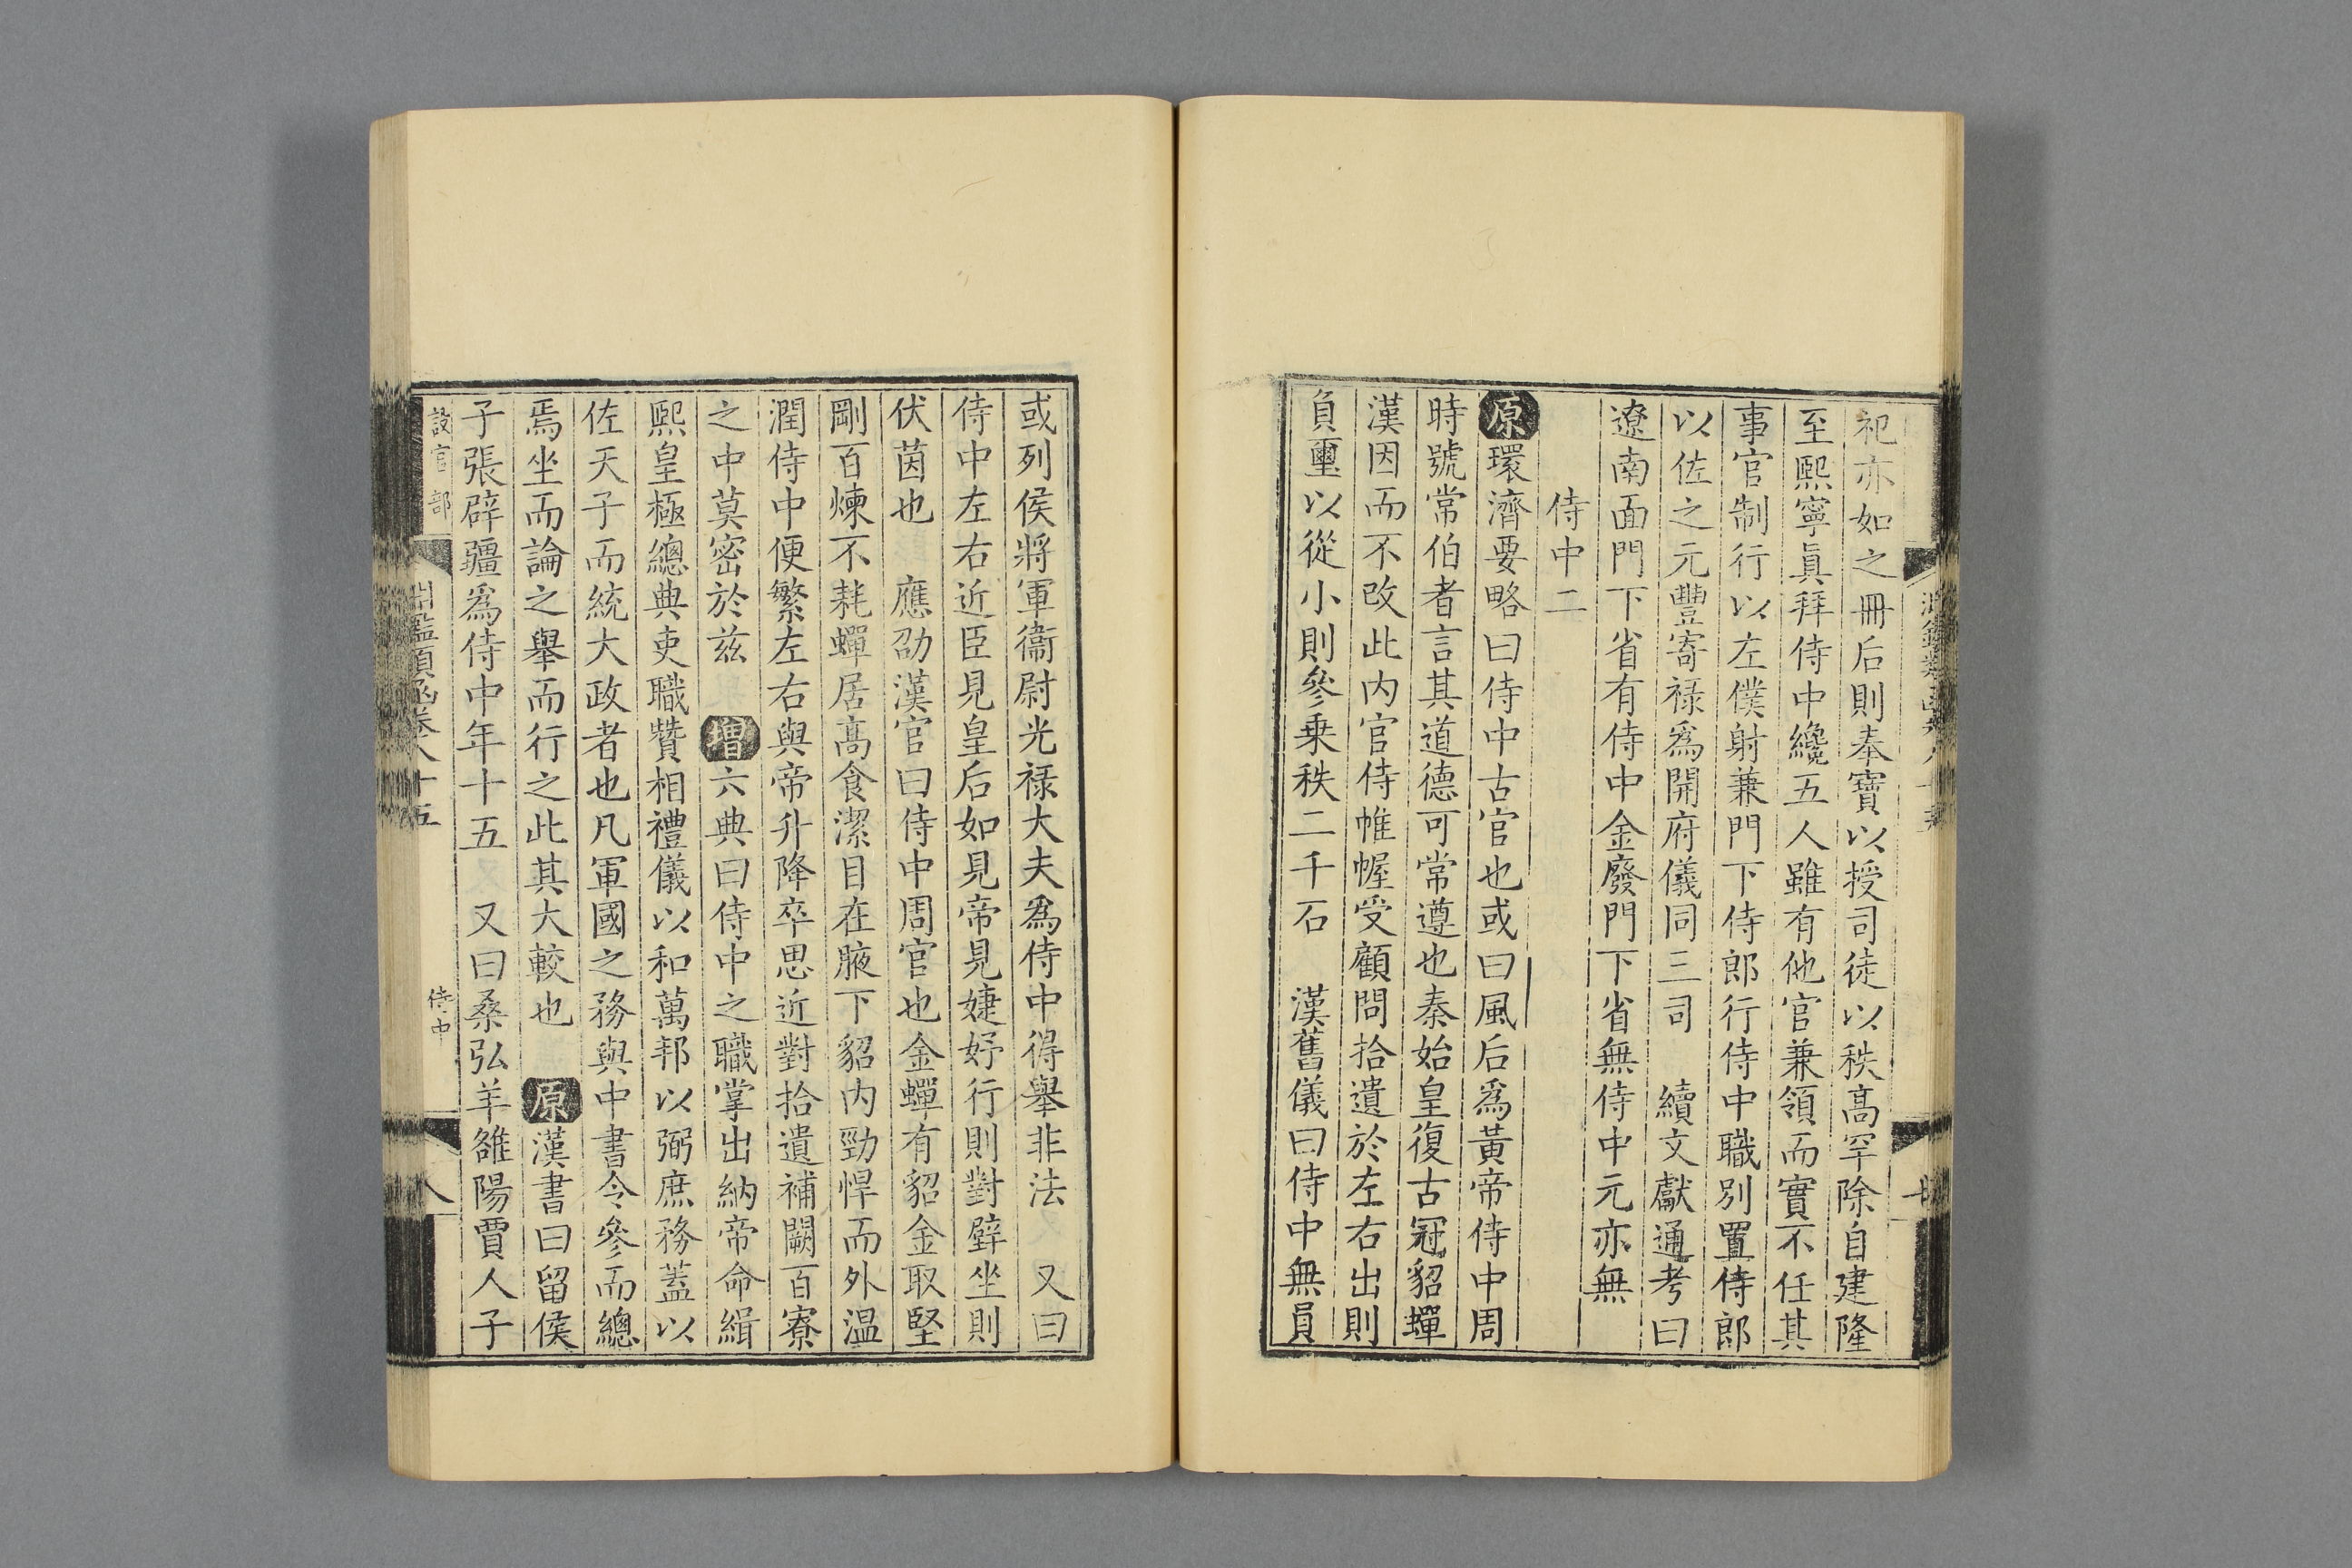 祀亦如之冊后則奉寶以授司徒以秩高罕除自建隆
至熙寧眞拜侍中纔五人雖有他官兼領而實不任其
事官制行以左僕射兼門下侍郎行侍中職別置侍郎
以佐之元豐寄祿爲開府儀同三司　續文獻通考曰
遼南面門下省有侍中金廢門下省無侍中元亦無
侍中二
原環濟要略曰侍中古官也或曰風后爲黃帝侍中周
時號常伯者言其道德可常遵也秦始皇復古冠貂蟬
漢因而不改此内官侍帷幄受顧問拾遺於左右出則
負璽以從小則參乗秩二千石　漢舊儀曰侍中無員
或列侯將軍衞尉光祿大夫爲侍中得舉非法　又曰
侍中左右近臣見皇后如見帝見婕妤行則對壁坐則
伏茵也　應劭漢官曰侍中周官也金蟬有貂金取堅
剛百煉不耗蟬居高食潔目在腋下貂内勁悍而外温
潤侍中便繁左右與帝升降卒思近對拾遺補闕百寮
之中莫密於兹　增六典曰侍中之職掌出納帝命緝
熙皇極總典吏職贊相禮儀以和萬邦以弼庶務蓋以
佐天子而統大政者也凡軍國之務與中書令參而總
焉坐而論之舉而行之此其大較也　原漢書曰留侯
子張辟疆爲侍中年十五　又曰桑弘羊雒陽賈人子
設官部　淵鑑類函卷八十五　侍中　八